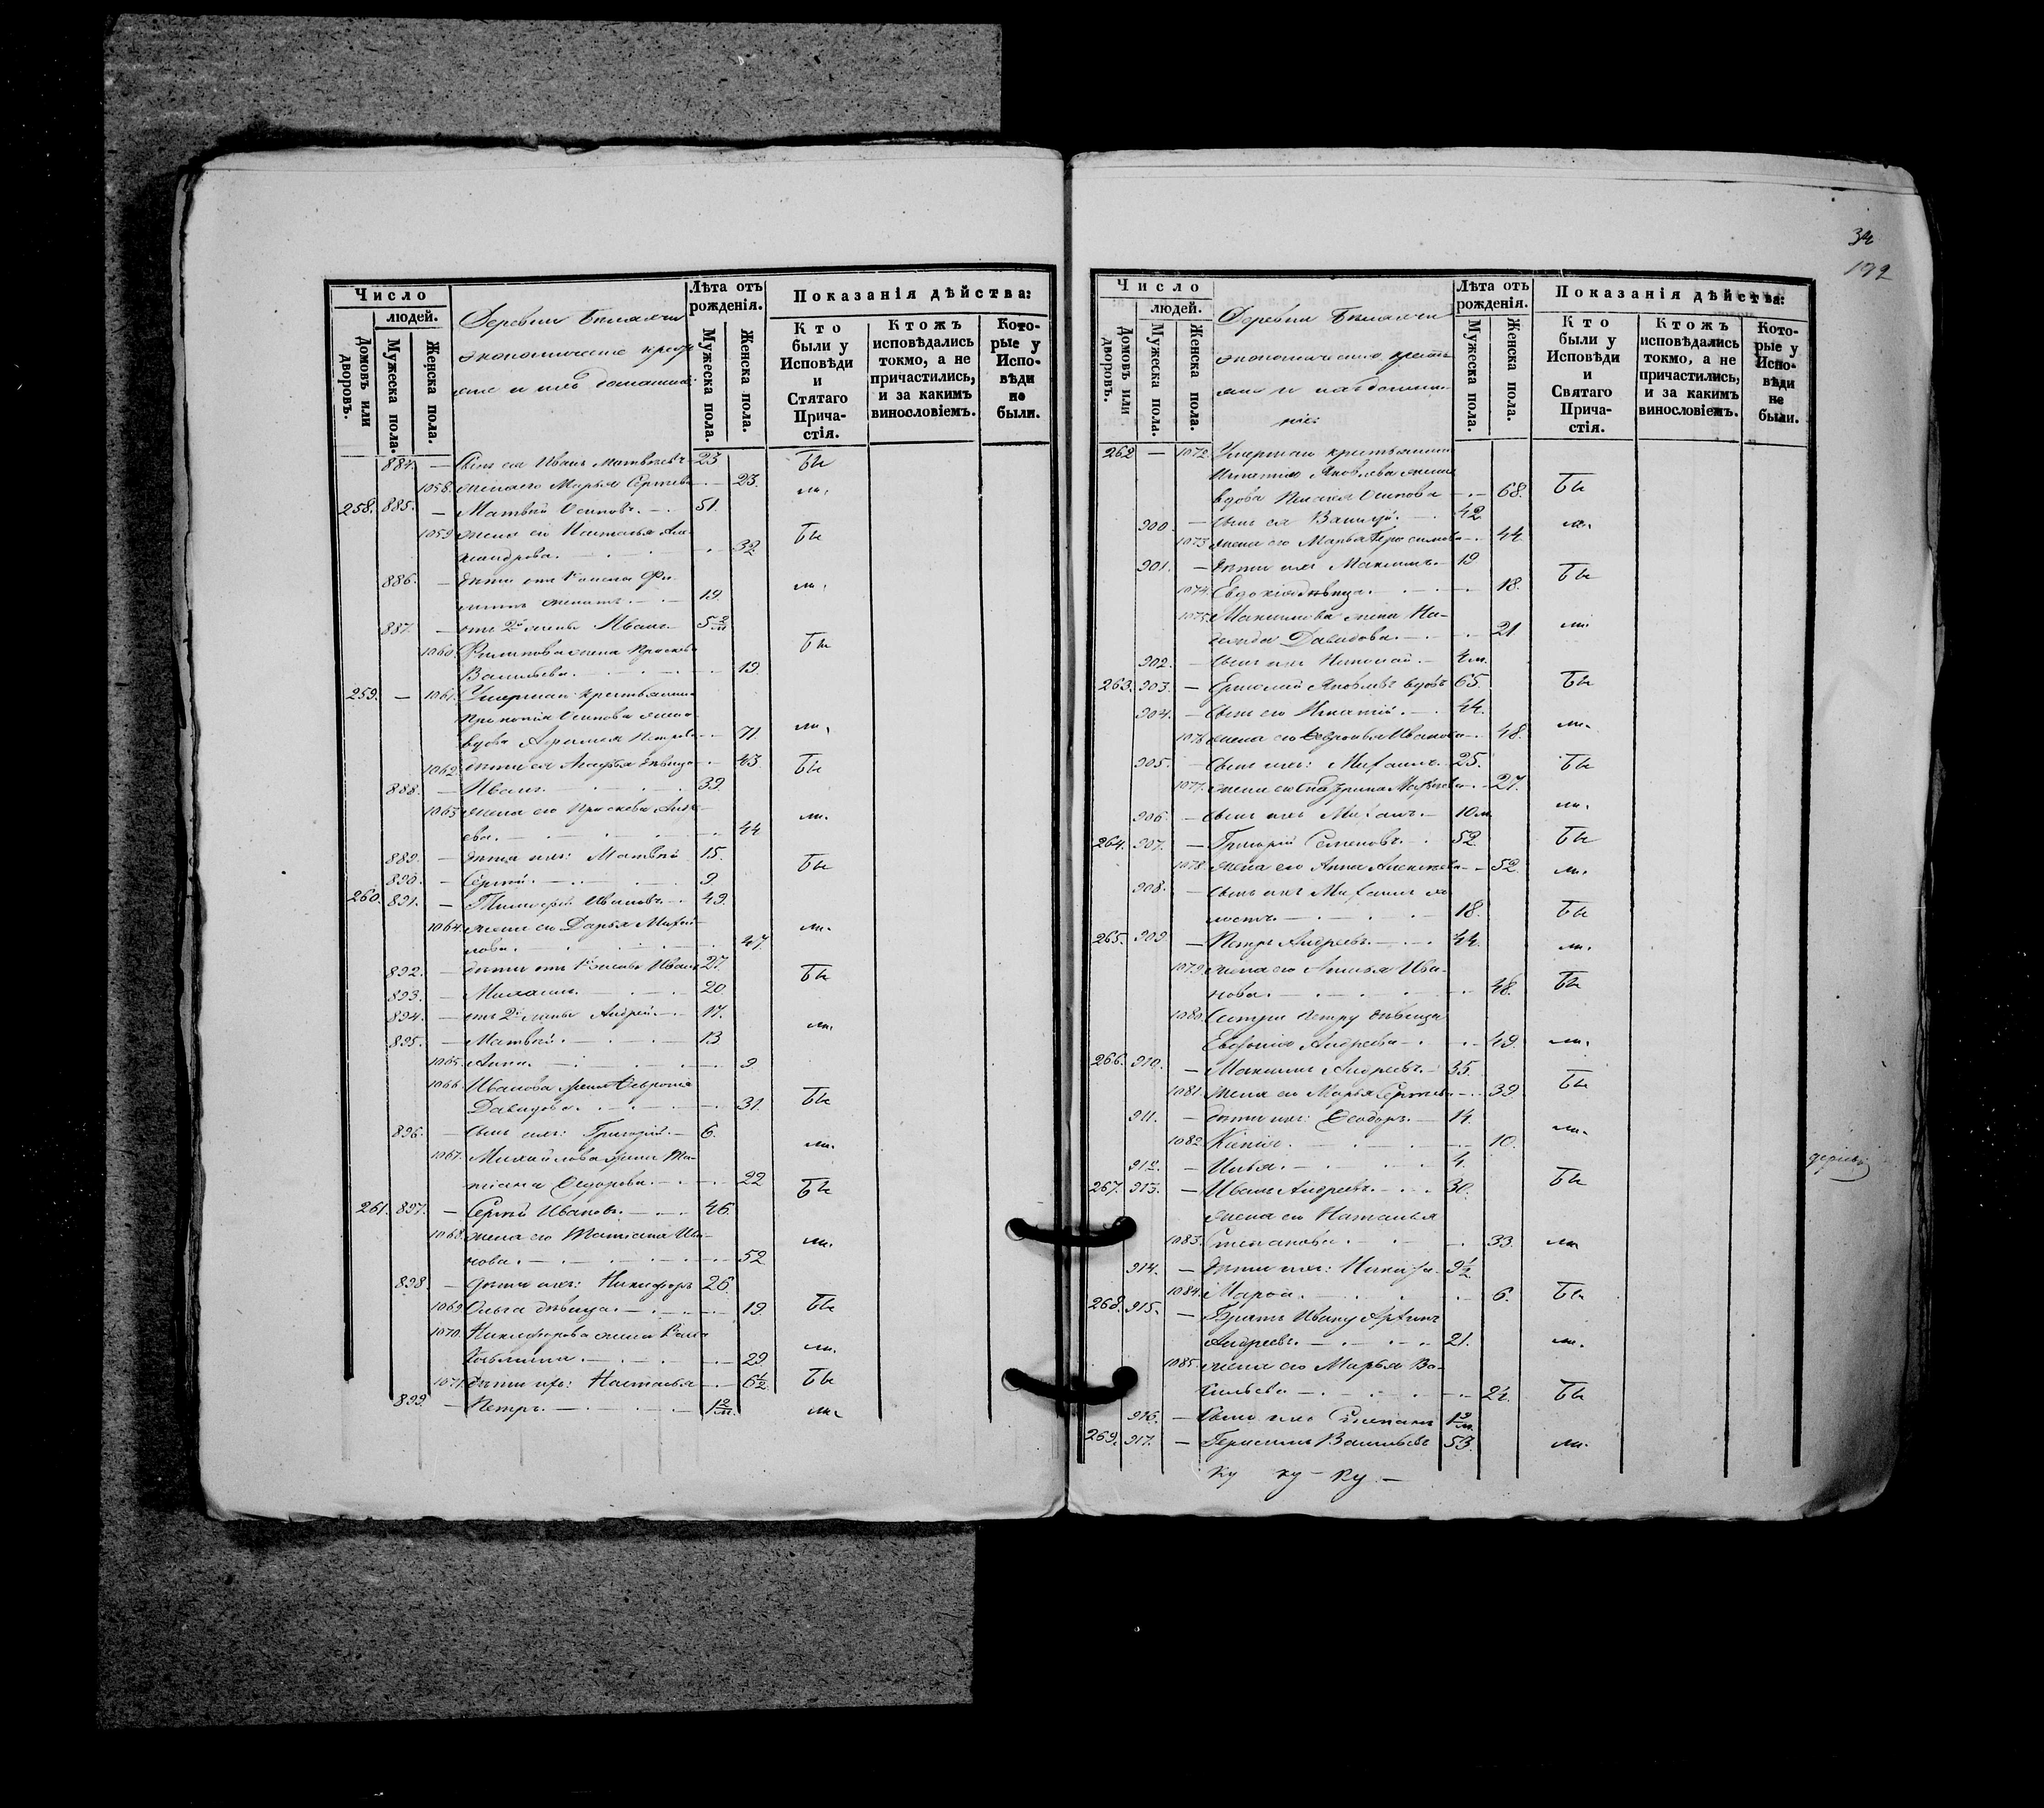 Число
людей.
Домовъ или дворовъ.
Мужеска пола.
Женска пола.
Деревни
экономическіе крестья
не и ихъ домашніе:
Лѣта отъ
рожденія.
Мужеска пола.
Женска пола.
Показанія дѣйства:
Кто
были у
Исповѣди
и
Стятаго
Прича-
стія.
Ктожъ
исповѣдались
токмо, а не
причастились,
и за какимъ
винословіемъ.
Кото-
рые у
Испо-
вѣди
не
были.
884. — Сынъ ея Иванъ Матвѣевъ 23 Бы
1058. жена его Марья Сергѣева — 23. ли.
258. 885. — Матвѣй Осиповъ. — 51.
1059 жена его Наталья Але
ксандрова. — 32 Бы
886. — дѣти отъ 1й жены Фи-
липпъ женатъ. — 19. ли.
887. — отъ 2й жены Иванъ 5 2/м
1060. Филиппова жена Прасковья Бы
Васильева. — 19.
259. — 1061. Умершаго крестьянина
Прокопія Осипова жена
вдова Петрова — 71. ли.
1062. дѣти ея Марья дѣвица — 43. Бы
888. — Иванъ. — 39.
1063 жена его Прасковья
ева. — 44 ли.
889. — дѣти ихъ: Матвѣй 15.
890. — Сергѣй. — 9. Бы
260. 891. — Тимофей Ивановъ. — 49.
1064. жена его Дарья Михай-
лова. — 47. ли.
892. — дѣти отъ 1й жены Иванъ 27.
893. — Михаилъ. — 20. Бы
894. — отъ 2й жены Андрей. — 17.
895. — Матвѣй. — 13 ли.
1065. Анна. — 9.
1066. Иванова жена Февронія
Давидова. — 31. Бы
896. — сынъ ихъ: Григорій. — 6.
1067. Михайлова жена Та- ли.
тіана Ѳедорова. — 22
261. 897. — Сергѣй Ивановъ. — 46. Бы
1068. жена его Татіана Ива-
нова. — 52 ли.
898. — дѣти ихъ: Никифоръ 26.
1069 Ольга дѣвица. — 19. Бы
1070. Никифорова жена
Козьмина. — 29. ли.
1071. дѣти ихъ: Наталья — 6½. Бы
899. — Петръ. — 1 2/м. ли.
34
192
Число
людей.
Домовъ или дворовъ.
Мужеска пола.
Женска пола.
Деревни
экономическіе крестья
не и ихъ домаш-
ніе:
Лѣта отъ
рожденія.
Мужеска пола.
Женска пола.
Показанія дѣйства:
Кто
были у
Исповѣди
и
Святаго
Прича-
стія.
Ктожъ
исповѣдались
токмо, а не
причастились,
и за какимъ
винословіемъ.
Кото-
рые у
Испо-
вѣди
не
были.
262 — 1072. Умершаго крестьянина
Игнатія Яковлева жена
вдова Осипова — 68. Бы
900. — сынъ ея Василій. — 42
1073 жена его Марья Герасимова — 44 ли.
901. — дѣти ихъ Максимъ. — 19
1074. Евдокія дѣвица. — 18. Бы
1075. Максимова жена На-
Давидова. — 21 ли.
902. — сынъ ихъ Николай. — 4м.
263. 903. — Ермолай Яковлевъ вдовъ 65. Бы
904. — сынъ его Игнатій. — 44.
1076 жена его Февронія Иванова — 48. ли.
905. — сынъ ихъ: Михаилъ. 25. Бы
1077. жена его Екатерина Матвѣева — 27.
906. — сынъ ихъ Михаилъ. — 10м. ли.
264. 907. — Григорій Семеновъ. 52 Бы
1078. жена его Анна Алексѣева — 52. ли.
908. — сынъ ихъ Михаилъ хо
лостъ. — 18. Бы
265. 909 — Петръ Андреевъ. — 44. ли.
1079. жена его Ива-
нова. — 48. Бы
1080. Сестра Петру дѣвица
Евфимія Андреева — 49. ли.
266. 910. — Максимъ Андреевъ. — 35.
1081. жена его Марья Сергѣева — 39. Бы
911. — дѣти ихъ: Ѳеодоръ. — 14.
1082. Ксенія. — 10. ли.
912. — Илья. — 4.
267. 913. — Иванъ Андреевъ. — 30. Бы
жена его Наталья
1083. Степанова. — 33. ли
914. — дѣти ихъ: Никита. 9½
1084. Марѳа. — 6. Бы
268. 915. — Братъ Ивану Архипъ
Андреевъ. — 21. ли.
1085. жена его Марья Ва-
сильева — 24. Бы
916. — Сынъ ихъ Степанъ 1 9/м.
269. 917. — Герасимъ Васильевъ 53. ли.
ку ку — ку. —